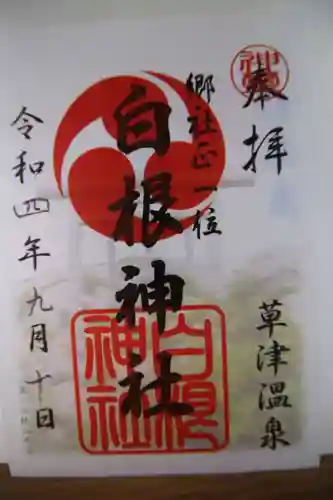 奉拝
草津温泉
郷社正一位
白根神社
白根神社
令和四年九月十日